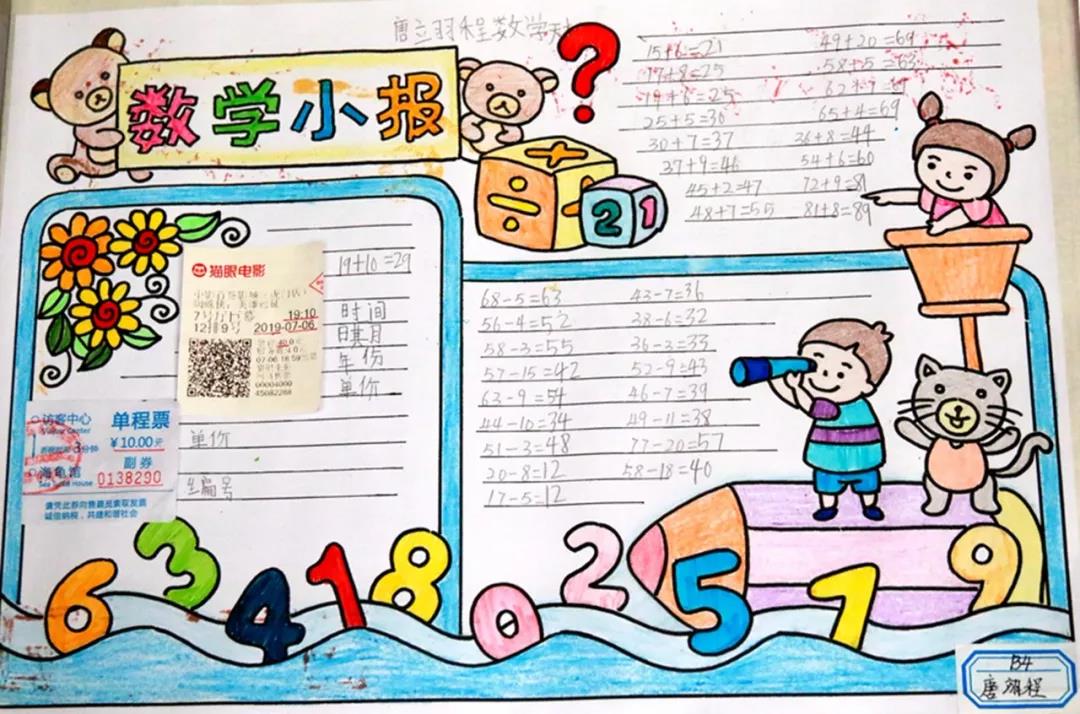 唐立羽程数学
数学小报
?
÷ + 2 1
15+6=21 49+20=69
17+8=25 58+5=63
19+6=25
25+5=30 65+4=69
30+7=37 36+8=44
37+9=46 54+6=60
45+2=47 72+9=81
48+7=55 81+8=89
19+10=29
猫眼电影
7号厅 19:10
12排9号 2019-07-06
00004000
45082268
时间
日期月
年份
单价
访客中心 单程票
Visitor Center ¥10.00元
海龟馆 副券
Sea Turtle House 0138290
请凭此券向售票员索取发票
诚信纳税,共建和谐社会
单价
编号
68-5=63 43-7=36
56-4=52 38-6=32
58-3=55 36-3=33
57-15=42 52-9=43
63-9=54 46-7=39
44-10=34 49-11=38
51-3=48 77-20=57
20-8=12 58-18=40
17-5=12
6 3 4 1 8 0 2 5 7 9
B4
唐翊程